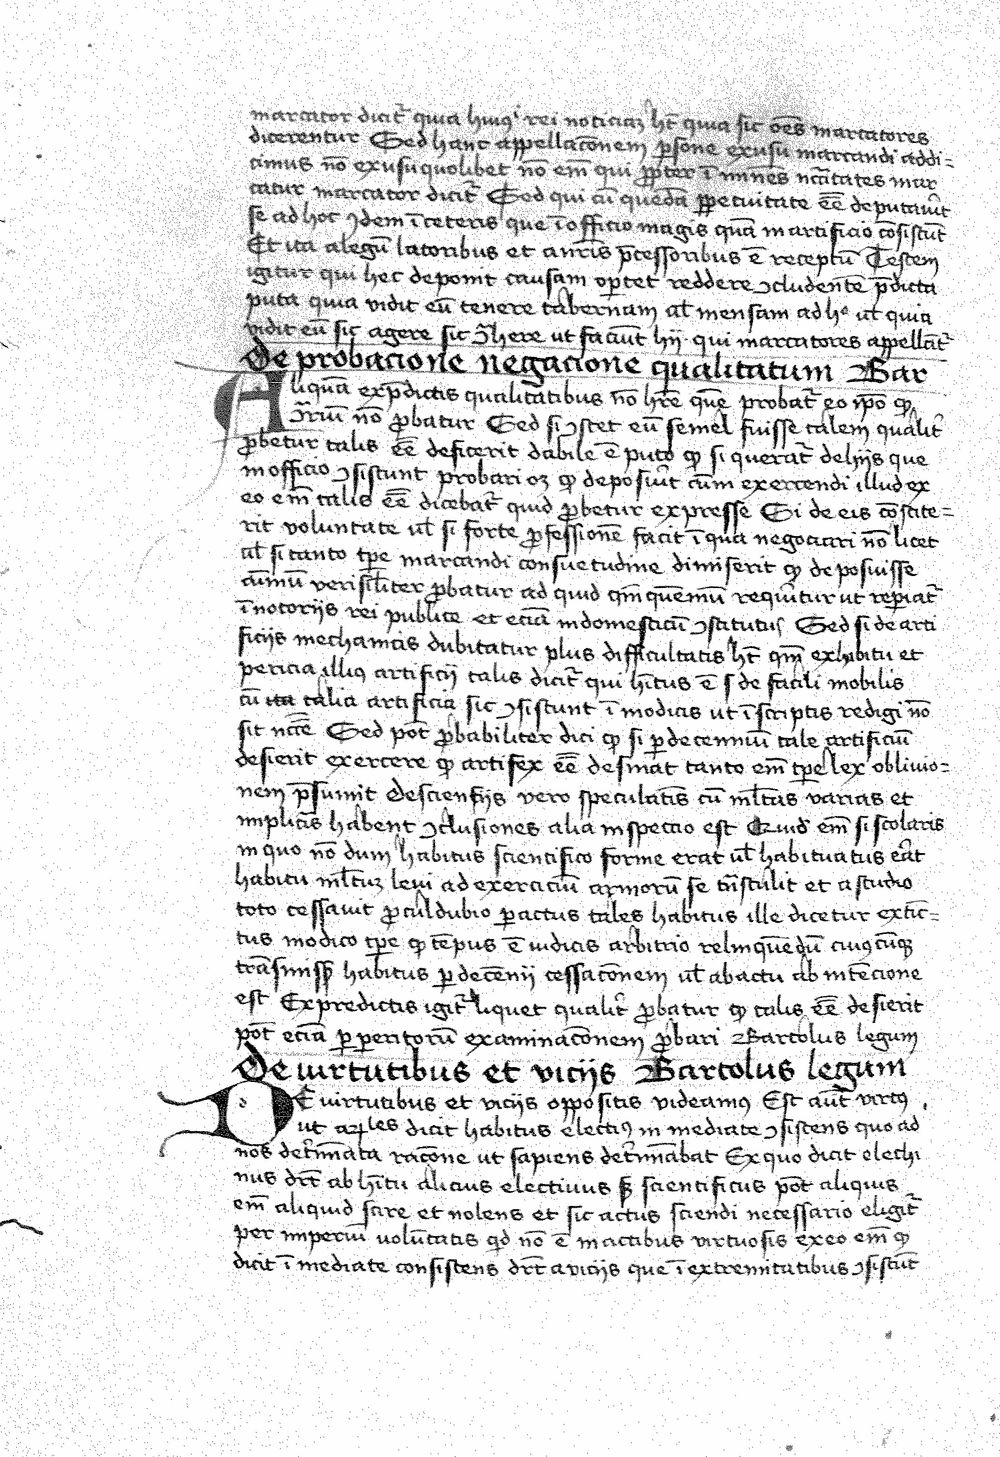 marcator dicit̃ quia huiꝰ rei noticiaʒ hꝫt quia sic oẽs marcatores
dicerentur Sed hanc appellacõnem ꝑsone ex usu marcandi addi=
cimus nõ ex usu quolibet nõ em̃ qui ꝓpter ĩ minẽs ncc̃itates mar
catur marcator dicit̃ Sed qui cũ quedã ꝑpetuitate ẽe deputaṽit
se ad hoc ꝯdem ĩ ceteris que ĩ officio magis quã in artificio cõsistũt
Et ita alegũ latoribus et a iuris ꝓcessoribus ẽ receptũ Testem
igitur qui hec deponit causam oportet reddere ꝯcludentẽ p̃dicta
puta quia vidit eũ tenere tabernam al̃ mensam ad hᵒ ul̃ quia
vidit eũ sic agere sic ꝯ̃here ut faciũt hij qui marcatores appellãt̃
De probacione negacione qualitatum Bar
Aliquã ex p̃dictis qualitatibus nõ hr̃e quẽ probat̃ eo ip̃o ꝙ
ꝯ̃riũ nõ ꝓbatur Sed si ꝯstet eũ semel fuisse talem qualit̃
ꝓbetur talis ẽe deficerit dabile ẽ puto ꝙ si querat̃ de hijs que
in officio ꝯsistunt probari oʒ ꝙ deposũit cum exercendi illud ex
eo em̃ talis ẽe dicebat̃ quid ꝓbetur expresse Si de eis cõstite=
rit voluntate ul̃ si forte ꝓfessionẽ facit ĩ qua negociari nõ licet
ul̃ si tanto tp̃e marcandi consuetudine dimiserit ꝙ deposuisse
animũ verisil̃iter ꝓbatur ad quid qm̃ quẽmũ requiritur ut reperiat̃
ĩ notorijs rei publice et eciã in domesticũ ꝯstitutis Sed si de arti
ficijs mechanicis dubitatur plus difficultatis hꝫt qm̃ ex habitu et
pericia illiꝰ artificij talis dicit̃ qui hĩtus ẽ s de facili mobilis
cũ ita talia artificia sic ꝯsistunt ĩ modicis ut ĩ scriptis redigi nõ
sit nc̃cẽ Sed põt ꝓbabiliter dici ꝙ si ꝑ decennium tale artificiũ
desierit exercere ꝙ artifex ẽe desinat tanto em̃ tp̃e lex oblivio=
nem p̃sumit De scientijs vero speculatĩs cũ ml̃tas varias et
implicĩs habent ꝯclusiones alia inspectio est Quid em̃ si scolaris
in quo nõ dum habitus scientifico forme erat ul̃ habituatus eãt
habitu ml̃tuʒ levi ad exerciciũ armorũ se tñstulit et a studio
toto cessauit ꝓculdubio ꝑ actus tales habitus ille dicetur extic̃=
tus modico tp̃e ꝙ tẽpus ẽ iudicis arbitrio relinquẽdũ cuiꝰcũqꝫ
habitus ꝑ decẽnij cessacõnem ul̃ ab actu ab intẽcione
est Ex predictis igit̃ liquet qualit̃ ꝓbatur ꝙ talis ẽe desierit
põt eciã ꝑ peritorũ examinacõnem ꝓbari Bartolus legum
De virtutibus et vicijs Bartolus legum
De virtutibus et vicijs oppositis videamꝰ Est aut̃ virtꝰ
ut dicit habitus electiꝰ in mediate ꝯsistens quo ad
nos det̃mĩata racõne ut sapiens det̃mĩabat Ex quo dicit elechi
nus dr̃t ab hĩtu alicuius electiuus scientificus põt aliquis
em̃ aliquid scire et nolens et sic actus sciendi necessario eligit̃
per imperiũ volũtatis qd nõ ẽ in actibus virtuosis ex eo em̃ ꝙ
dicit ĩ mediate consistens dr̃t a vicijs que ĩ extremitatibus ꝯsistũt